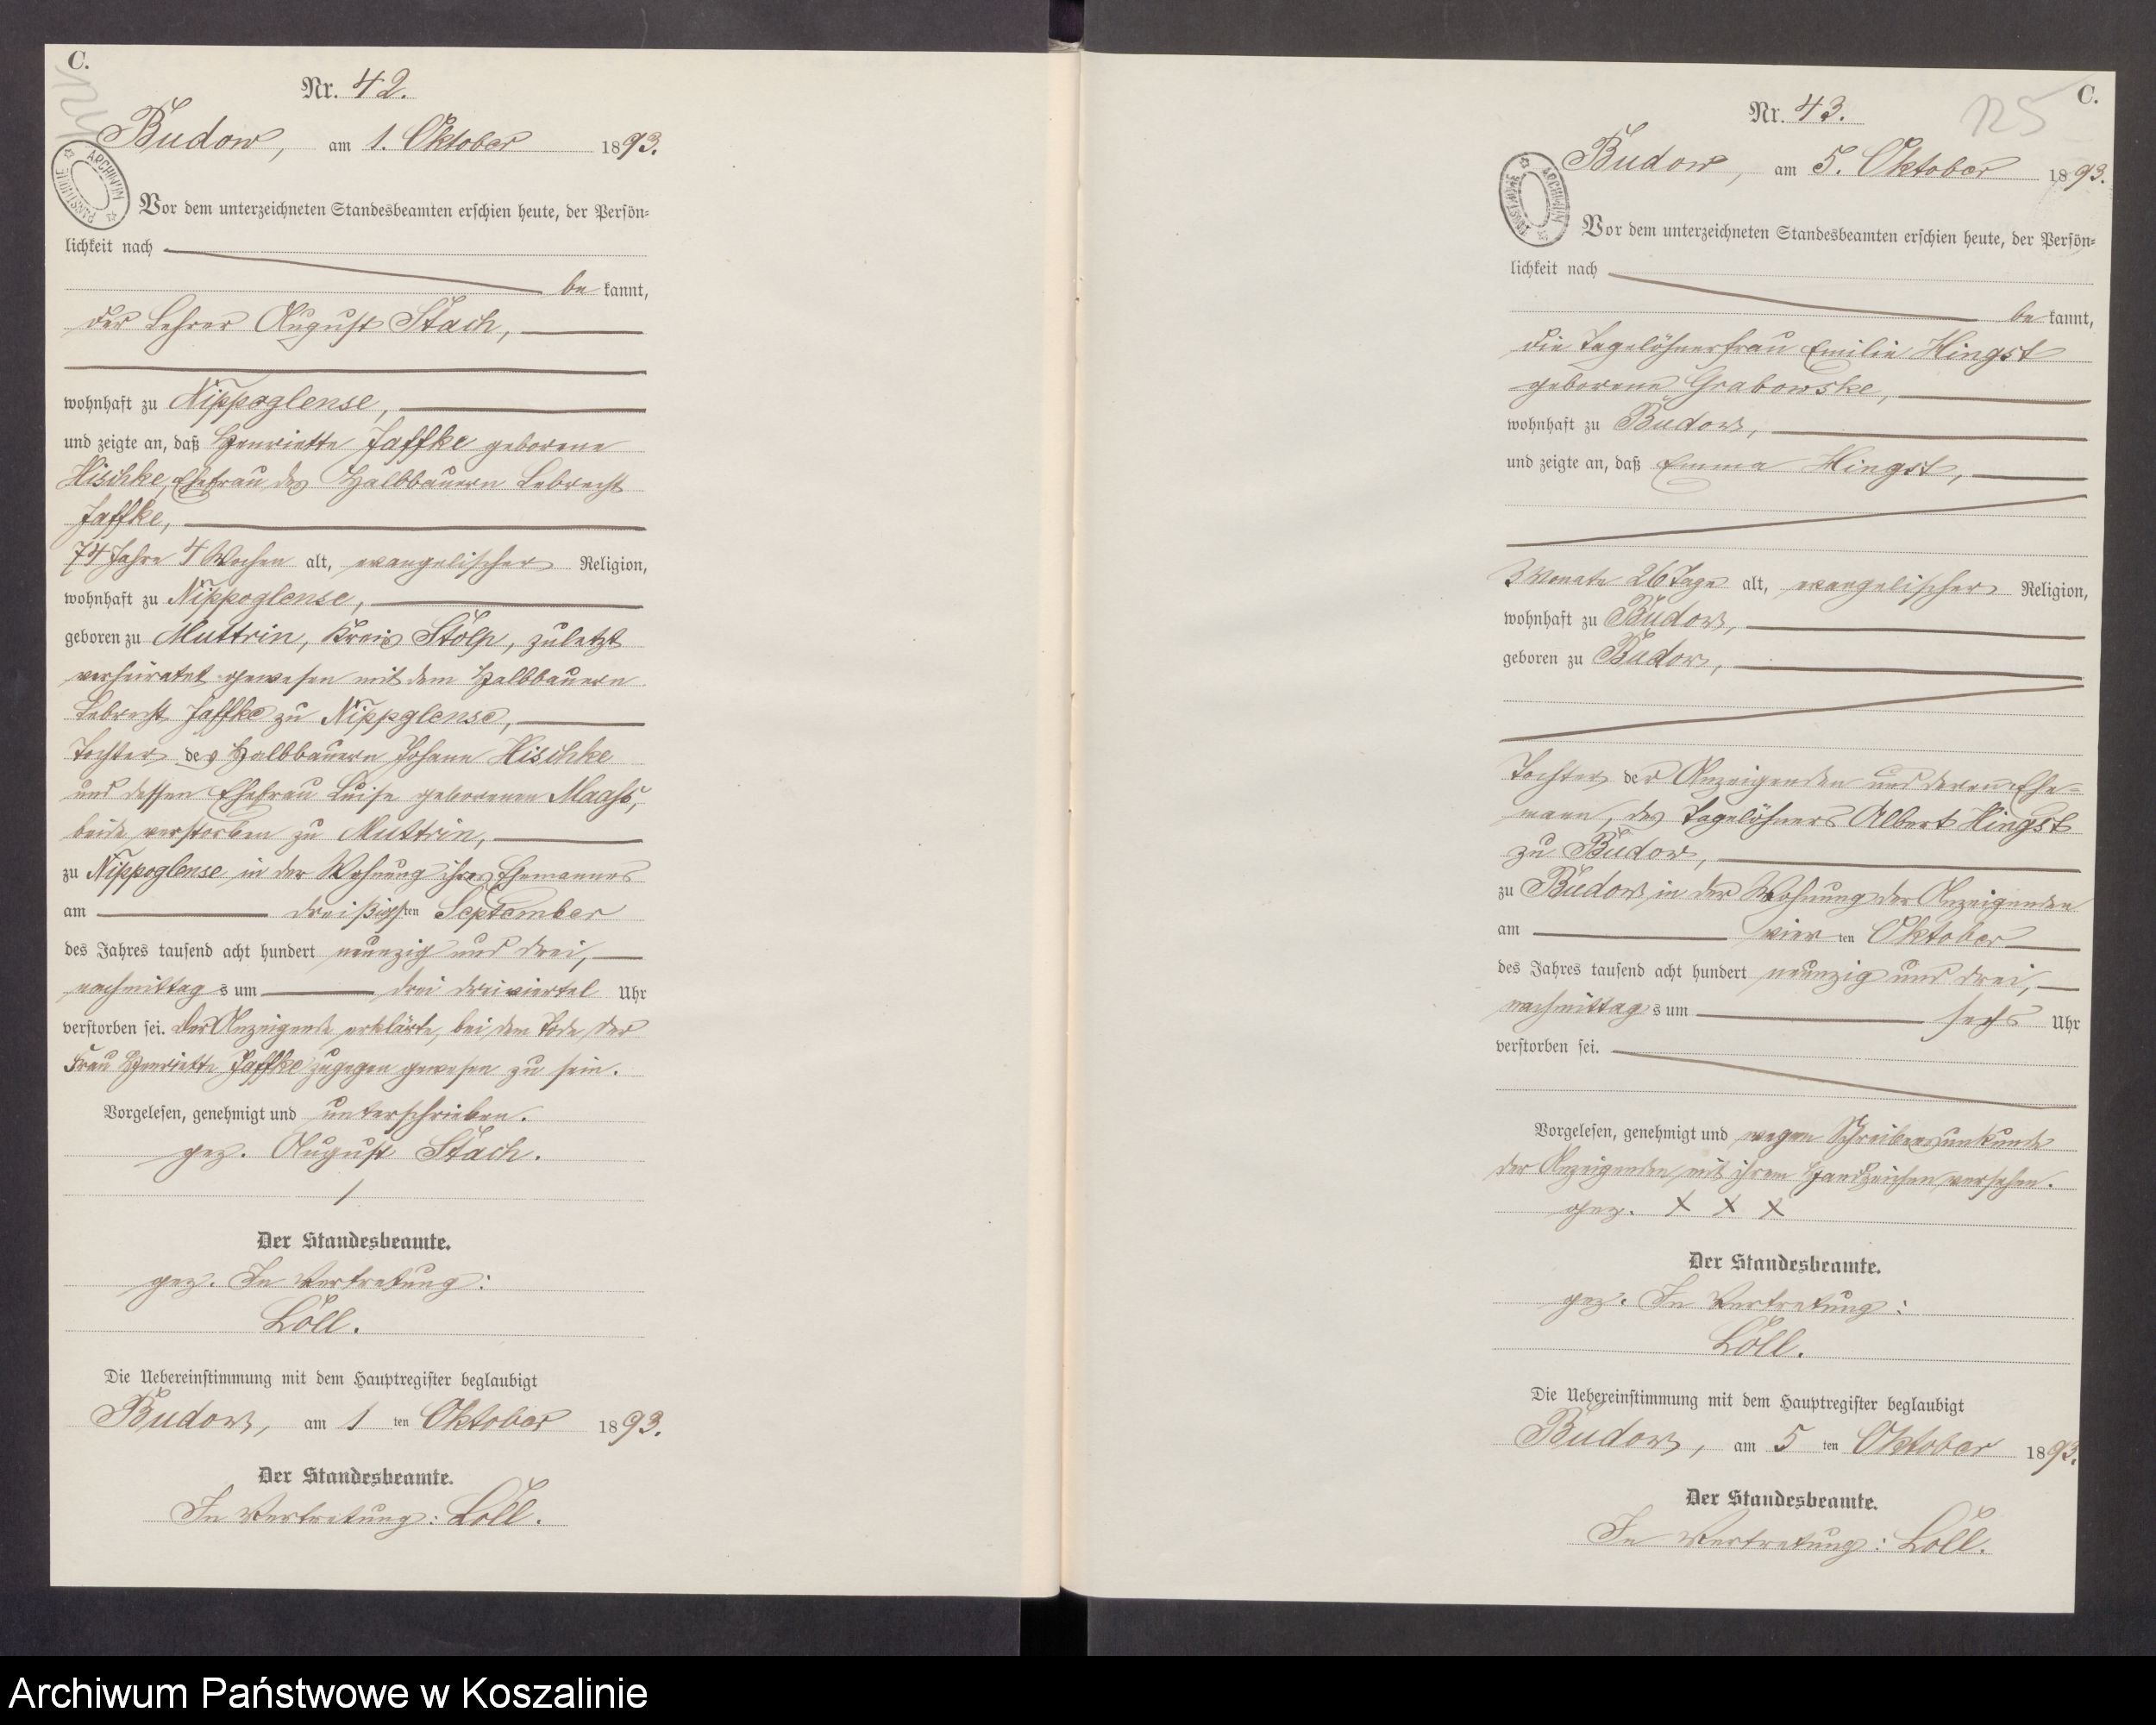 C.
124
Nr. 42.
Budow, am 1. Oktober 1893.
ARCHIWUM PAŃSTWOWE
Vor dem unterzeichneten Standesbeamten erschien heute, der Persön-
lichkeit nach
be kannt,
der Lehrer August Stach,
wohnhaft zu Nippoglense,
und zeigte an, daß Henriette Jaffke geborene
Hischke, Ehefrau des Halbbauern Lebrecht
Jaffke,
74 Jahre 4 Wochen alt, evangelischer Religion,
wohnhaft zu Nippoglense,
geboren zu Muttrin, Kreis Stolp, zuletzt
verheiratet gewesen mit dem Halbbauern
Lebrecht Jaffke zu Nippglense,
Tochter des Halbbauern Johann Hischke
und dessen Ehefrau Luise geborenen Maahs,
beide verstorben zu Muttrin,
zu Nippoglense in der Wohnung ihres Ehemannes
am dreißigsten September
des Jahres tausend acht hundert neunzig und drei,
nachmittag s um drei dreiviertel Uhr
verstorben sei. Der Anzeigende erklärte, bei dem Tode der
Frau Henriette Jaffke zugegen gewesen zu sein.
Vorgelesen, genehmigt und unterschrieben.
gez. August Stach.
Der Standesbeamte.
gez. In Vertretung:
Löll.
Die Uebereinstimmung mit dem Hauptregister beglaubigt
Budow, am 1 ten Oktober 1893.
Der Standesbeamte.
In Vertretung: Löll.
C.
125
Nr. 43.
Budow, am 5. Oktober 1893.
ARCHIWUM PAŃSTWOWE
Vor dem unterzeichneten Standesbeamten erschien heute, der Persön-
lichkeit nach
be kannt,
die Tagelöhnerfrau Emilie Hingst
geborene Grabowske,
wohnhaft zu Budow,
und zeigte an, daß Emma Hingst,
3 Monate 26 Tage alt, evangelischer Religion,
wohnhaft zu Budow,
geboren zu Budow,
Tochter der Anzeigenden und deren Ehe-
mann, des Tagelöhners Albert Hingst
zu Budow,
zu Budow in der Wohnung der Anzeigenden
am vier ten Oktober
des Jahres tausend acht hundert neunzig und drei,
nachmittag s um sechs Uhr
verstorben sei.
Vorgelesen, genehmigt und wegen Schreibensunkunde
der Anzeigenden mit ihrem Handzeichen versehen.
gez. X X X
Der Standesbeamte.
gez. In Vertretung:
Löll.
Die Uebereinstimmung mit dem Hauptregister beglaubigt
Budow, am 5 ten Oktober 1893.
Der Standesbeamte.
In Vertretung: Löll.
Archiwum Państwowe w Koszalinie